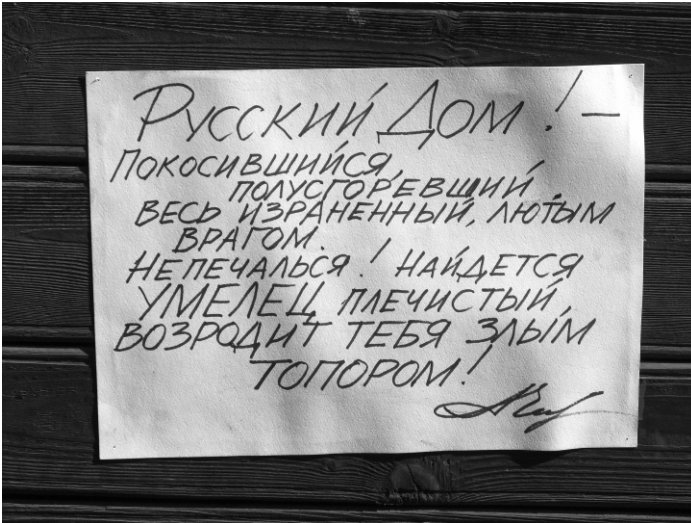 Русский Дом! —
Покосившийся,
полусгоревший.
весь израненный, лютым
врагом.
Не печалься! Найдется
умелец плечистый,
возродит тебя злым
топором!